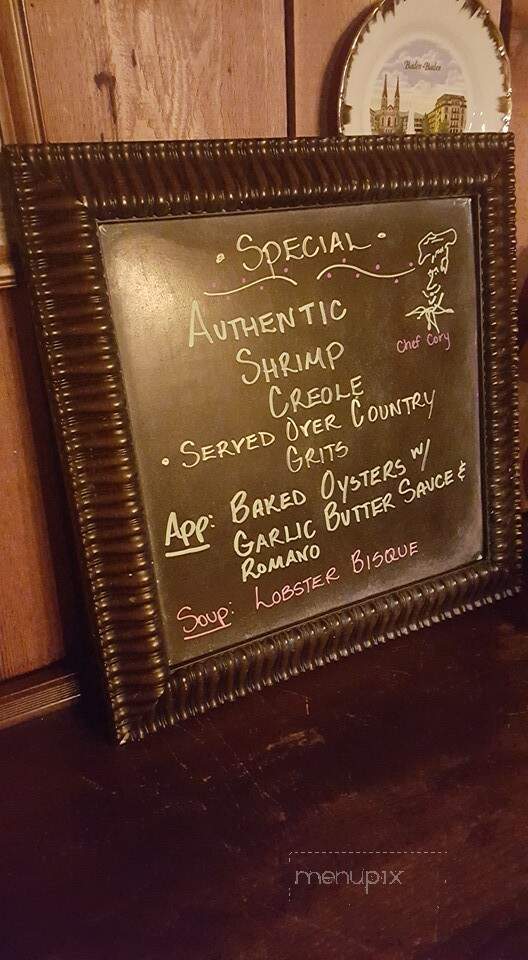 Baden-Baden
• SPECIAL •
Chef Cory
AUTHENTIC
SHRIMP
CREOLE
• SERVED OVER COUNTRY
GRITS
App: BAKED OYSTERS W/
GARLIC BUTTER SAUCE &
ROMANO
Soup: LOBSTER BISQUE
menupix